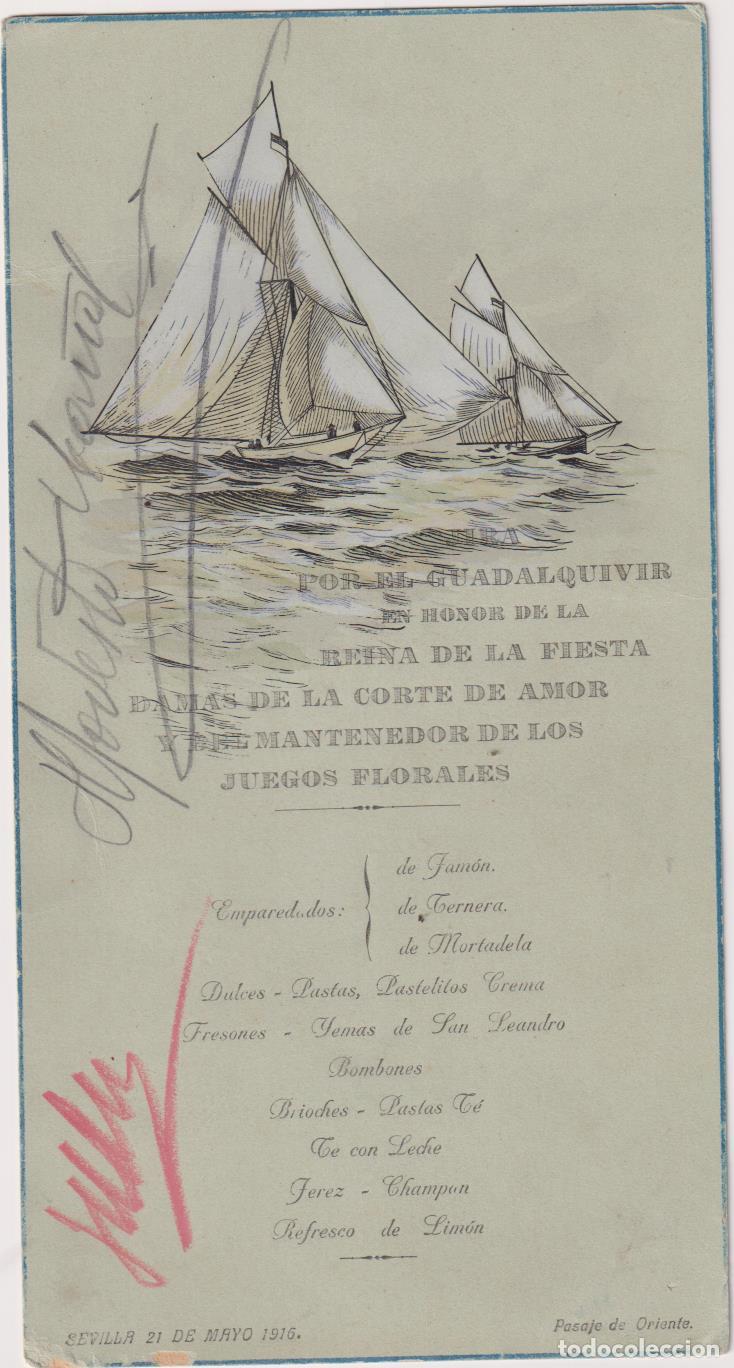 JIRA
POR EL GUADALQUIVIR
EN HONOR DE LA
REINA DE LA FIESTA
DAMAS DE LA CORTE DE AMOR
Y DEL MANTENEDOR DE LOS
JUEGOS FLORALES
Emparedados:
de Jamón.
de Ternera.
de Mortadela
Dulces - Pastas, Pastelitos Crema
Fresones - Yemas de San Leandro
Bombones
Brioches - Pastas Té
Te con Leche
Jerez - Champan
Refresco de Limón
SEVILLA 21 DE MAYO 1916.
Pasaje de Oriente.
todocoleccion